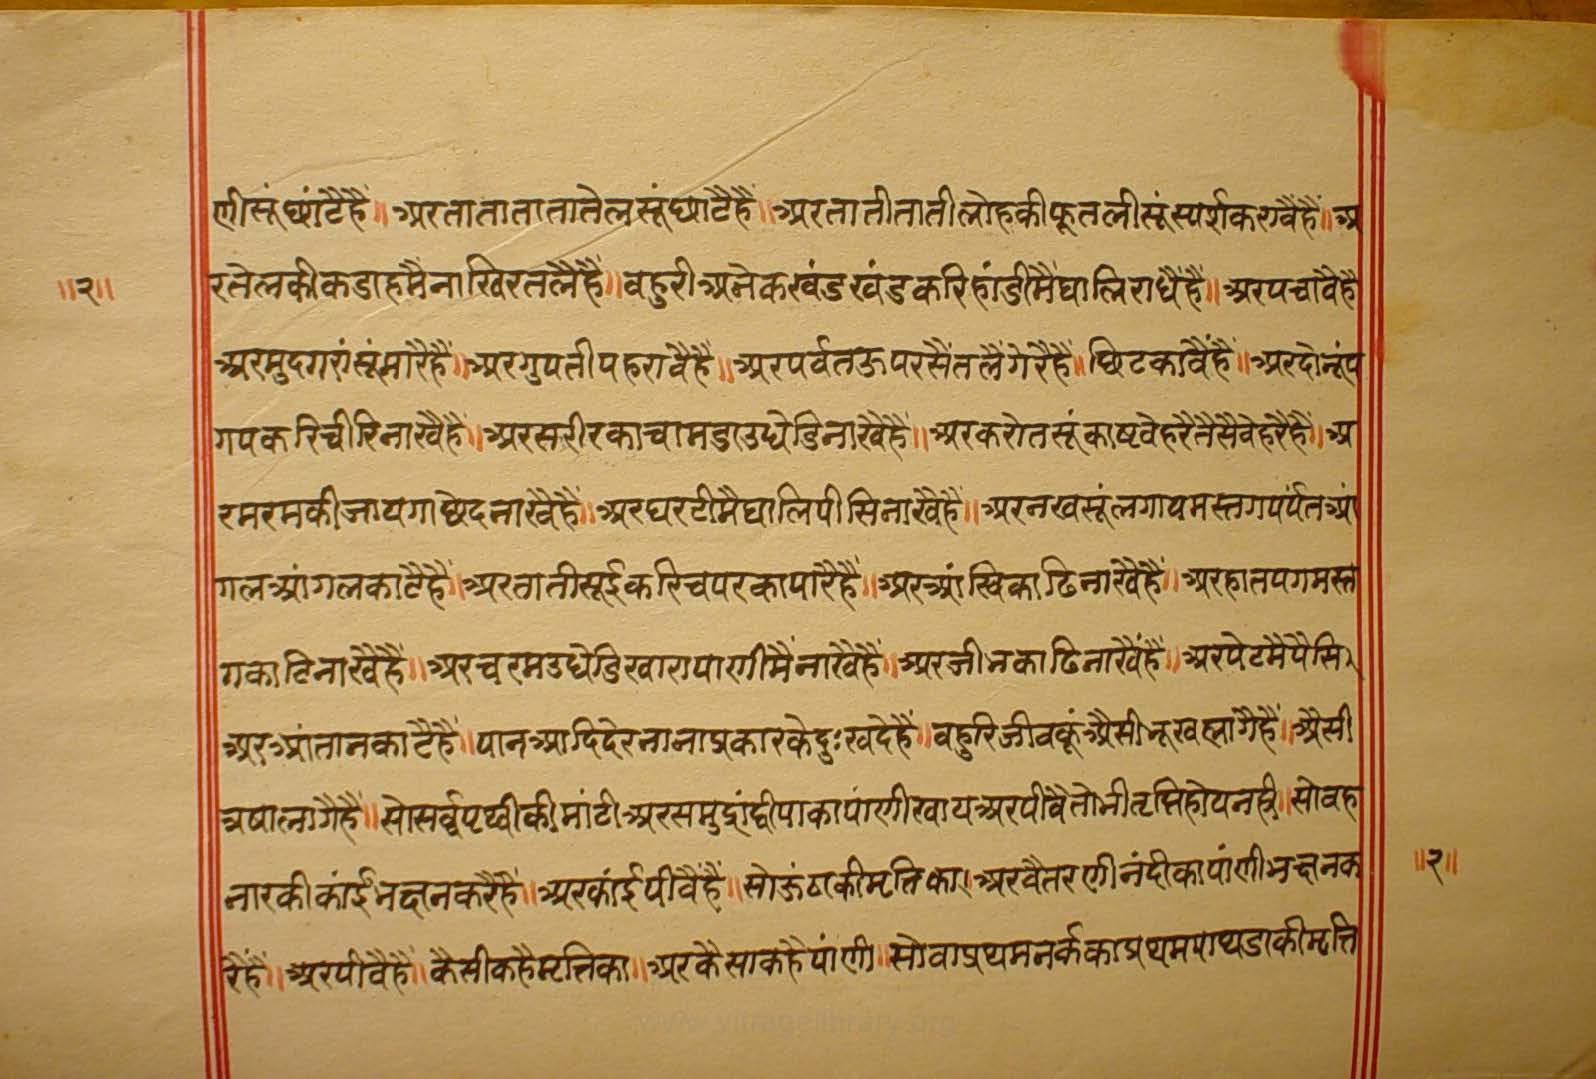 णीसूंछांटैहैं॥ अरतातातातातेलसूंछाटैहैं॥ अरतातीतातीलोहकीफूतलीसूंस्पर्शकरावैहैं॥ अ
॥२॥
रतेलकीकडाहमैंनाखिरतलैहैं॥ वहुरीअनेकखंडखंडकरिहांडीमैंघालिराधैंहैं॥ अरपचावैहै
अरमुदगरांसूंमारैहैं॥ अरगुपतीपहरावैहैं॥ अरपर्वतऊपरसैंतलैंगेरैहैं॥ छिटकावैंहैं॥ अरदोनूंप
गपकरिचीरिनाखैहैं॥ अरसरीरकाचामडाउघेडिनाखैहैं॥ अरकरोतसूंकाष्टवेहरैतैसैवेहरैहैं॥ अ
रमरमकीजायगाछेदनाखैहैं॥ अरघरटीमैघालिपीसिनाखैहैं॥ अरनखसूंलगायमस्तगपर्यंतआं
गलआंगलकाटैहैं॥ अरतातीसूईकरिचपरकापारैहैं॥ अरआंखिकाढिनाखैहैं॥ अरहातपगमस्त
गकाटिनाखैहैं॥ अरचरमउघेडिखारापाणीमैंनाखैहैं॥ अरजीभकाढिनाखैंहैं॥ अरपेटमैपैसि
अरआंतानकाटैहैं॥ पानआदिदेरनानाप्रकारकेदुःखदेहैं॥ वहुरिजीवकूंअैसीभूखलागैहैं॥ अैसी
त्रषालागैहैं॥ सोसर्वपृथ्वीकीमांटीअरसमुद्रांद्वीपाकापांणीखायअरपीवैतोभीतृप्तिहोयनही॥ सोवह
नारकीकांईभक्षनकरैहैं॥ अरकांईपीवैंहैं॥ सोऊंठाकीमृत्तिका॥ अरवैतरणीनंदीकापांणीभक्षनक
॥२॥
रैहैं॥ अरपीवैहैं॥ कैसीकहैमृत्तिका॥ अरकैसाकहैपांणी॥ सोवाप्रथमनर्ककाप्रथमपाथडाकीमृत्ति
www.vitragelibrary.org